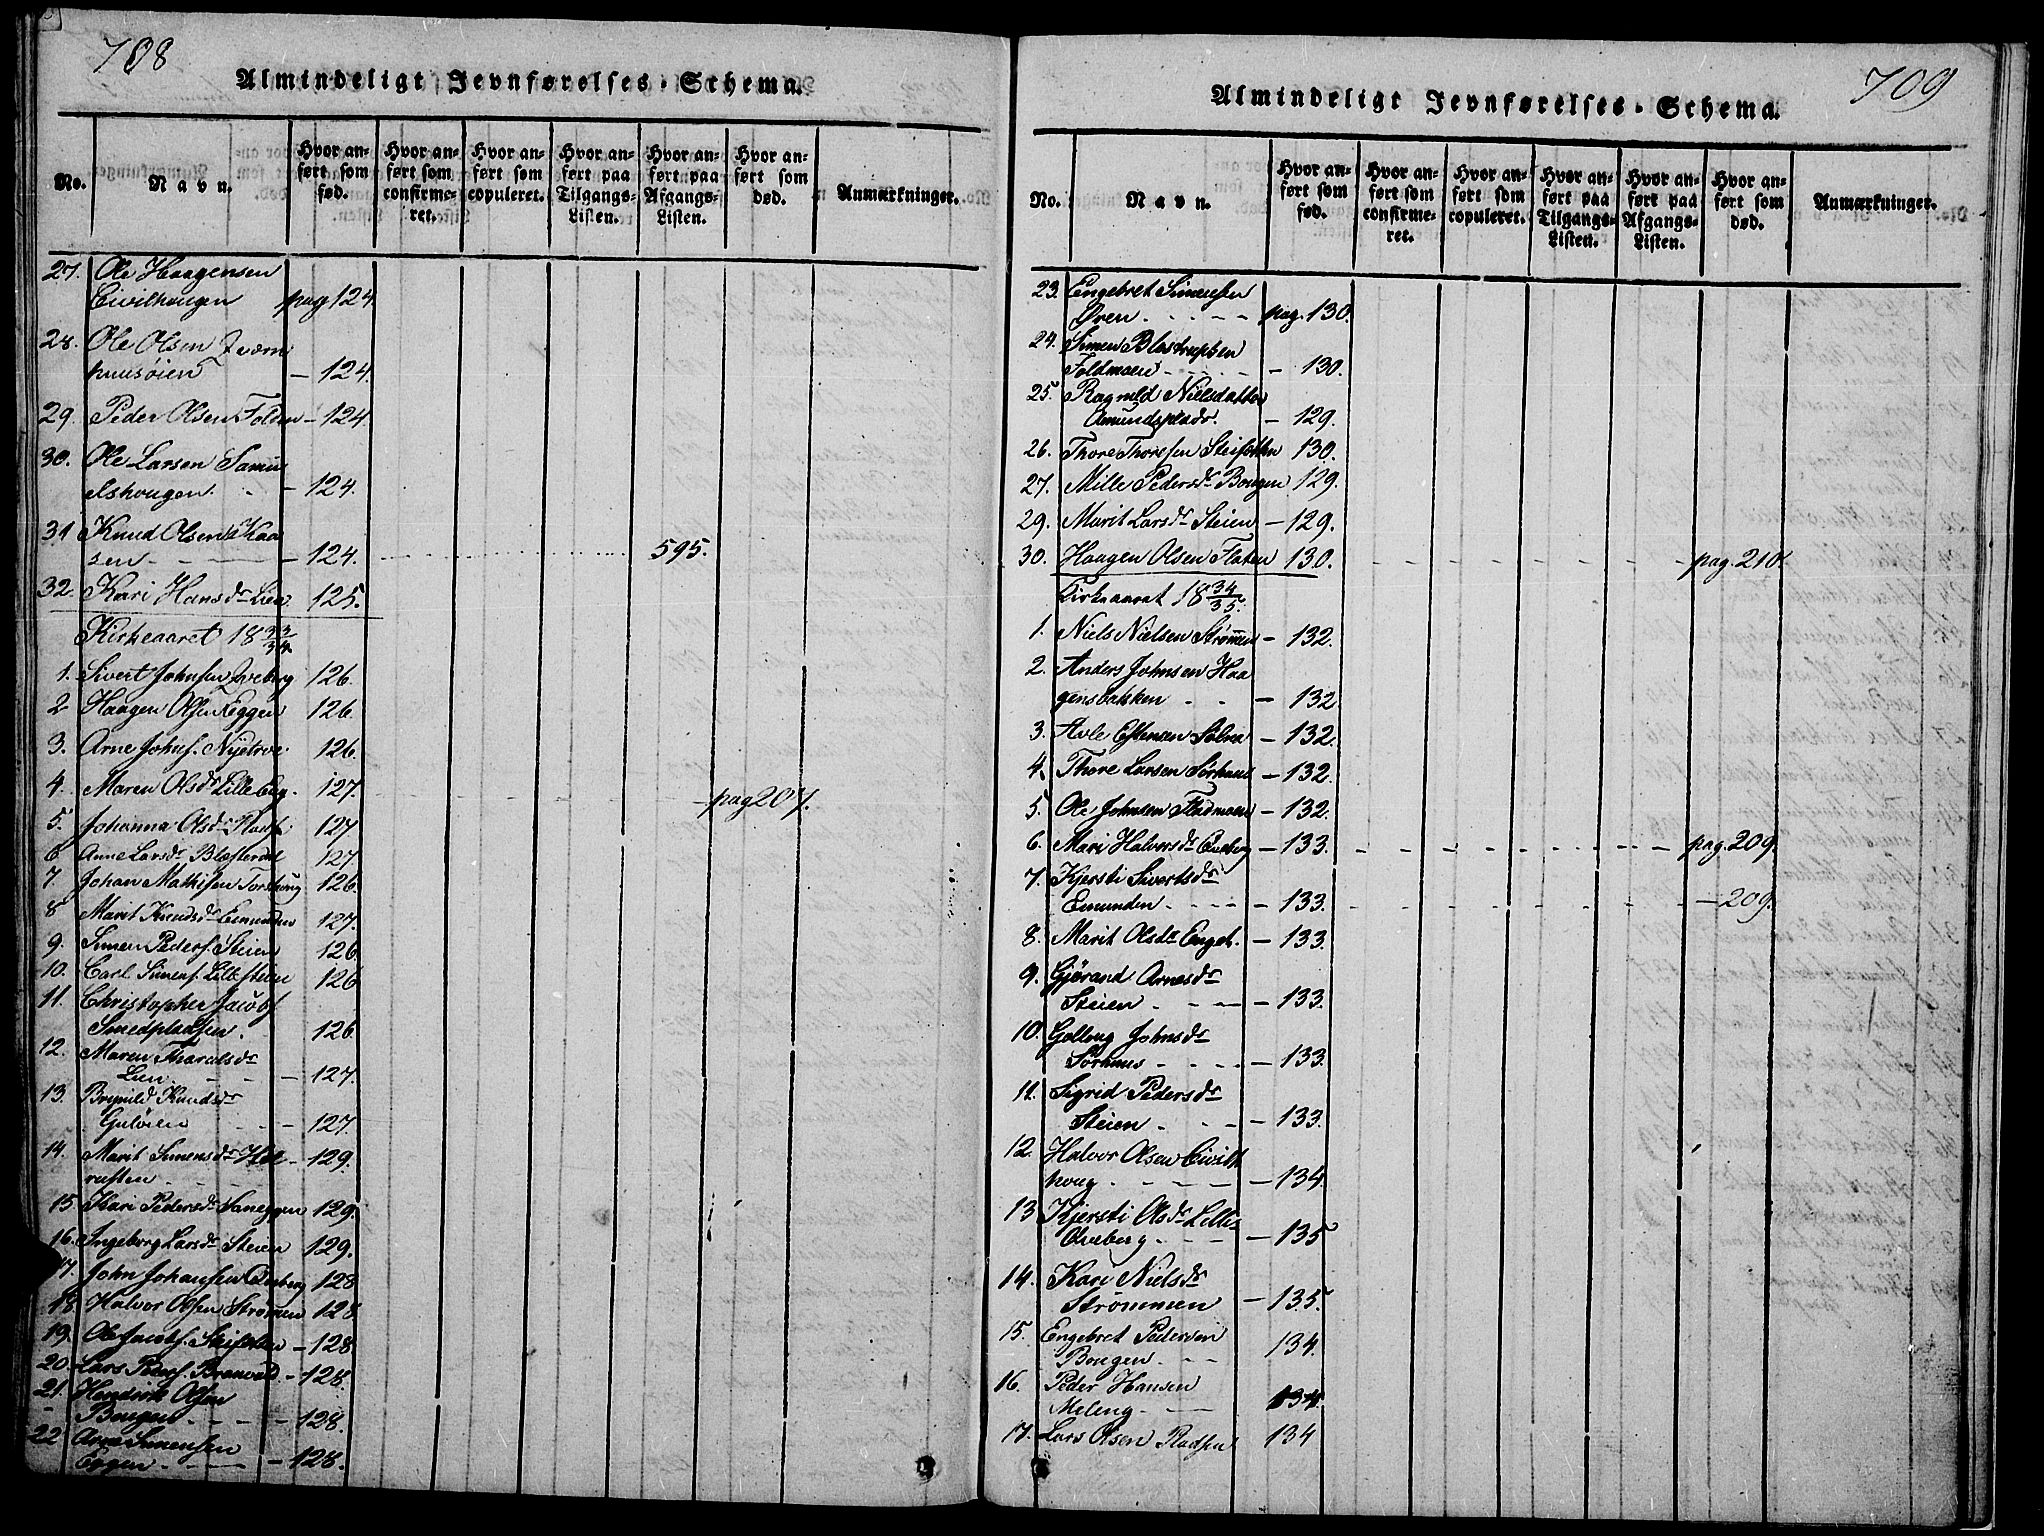 708
Almindeligt Jevnførelses-Schema.
No.
Navn.
Hvor anført som fød.
Hvor anført som confirmeret.
Hvor anført som copuleret.
Hvor anført paa Tilgangs-Listen.
Hvor anført paa Afgangs-Listen.
Hvor anført som død.
Anmærkninger.
27. Ole Haagensen
Eivilhougen pag 124.
28. Ole Olsen Qværn
huusøien — 124.
29. Peder Olsen Folden — 124.
30. Ole Larsen Samu
elshougen. - — 124.
31 Knud Olsen Kaa
sen - — 124. 595.
32. Kari Hansdr Lien 125.
Kirkeaaret 18 33/34.
1. Sivert Johnsen Qveberg 126.
2 Haagen Olsen Eggen 126.
3. Arne Johns. Nyetrøe. 126.
4. Maren Olsdr Lilleberg. 127. — pag 207.
5. Johanna Olsdr 127
6 Anne Larsdr Blæsterdal 127
7. Johan Mathisen Torshoug 126.
8 Marit Knudsdr Emunden 127.
9. Simen Peders. Steien 126
10. Carl Simens. Lillesteien 126
11. Christopher Jacobs.
Smedpladsen. 126.
12. Maren Tharalsdr
Lien. — 127.
13. Brynild Knudsdr
Guløien — 127.
14. Marit Simensdr Hol — 129.
rusten
15 Kari Pedersdr Vaneggen 129.
16. Ingeborg Larsdr Steien 129.
17. John Johansen 128
18 Halvor Olsen Strømmen 128.
19. Ole Jacobs. Steifolden — 128
20. Lars Peders. Brænvold — 128.
21. Hendrik Olsen
Bougen — 128.
22 Arne Simensen
Eggen — 128.
709
Almindeligt Jevnførelses-Schema.
No.
Navn.
Hvor anført som fød.
Hvor anført som confirmeret.
Hvor anført som copuleret.
Hvor anført paa Tilgangs-Listen.
Hvor anført paa Afgangs-Listen.
Hvor anført som død.
Anmærkninger.
23. Engebret Simensen
Øren. pag. 130.
24. Simen Blastrupsen
Foldmoen — 130.
25. Ragnild Nielsdatter
Amundspladr. — 129.
26. Thore Thoresen Steifolden 130.
27. Mille Pedersdr Bougen 129.
29. Marit Larsdr Steien — 129.
30. Haagen Olsen Flaten 130. — pag. 210.
Kirkeaaret 18 34/35.
1. Niels Nielsen Strømmen — 132.
2. Anders Johnsen Haa
gensbakken - — 132
3. Avle Estensen — 132.
4. Thore Larsen Sørhuus — 132.
5. Ole Johnsen Fladmoen — 132.
6. Mari Halvorsdr — 133. — pag. 209.
7. Kjersti Sivertsdr
Emunden — 133. — 209.
8. Marit Olsdr Enget. — 133.
9. Gjørand Arnesdr
Steien — 133.
10. Gollaug Johnsdr
Sørhuus — 133.
11. Sigrid Pedersdr
Steien — 133.
12. Halvor Olsen Eivilt
houg — 134.
13 Kjersti Olsdr Lille-
— 135
14. Kari Nielsdr
Strømmen — 135.
15. Engebret Pedersen
Bougen. 134.
16. Peder Hansen
Meleng 134.
17. Lars Olsen Pladsen 134